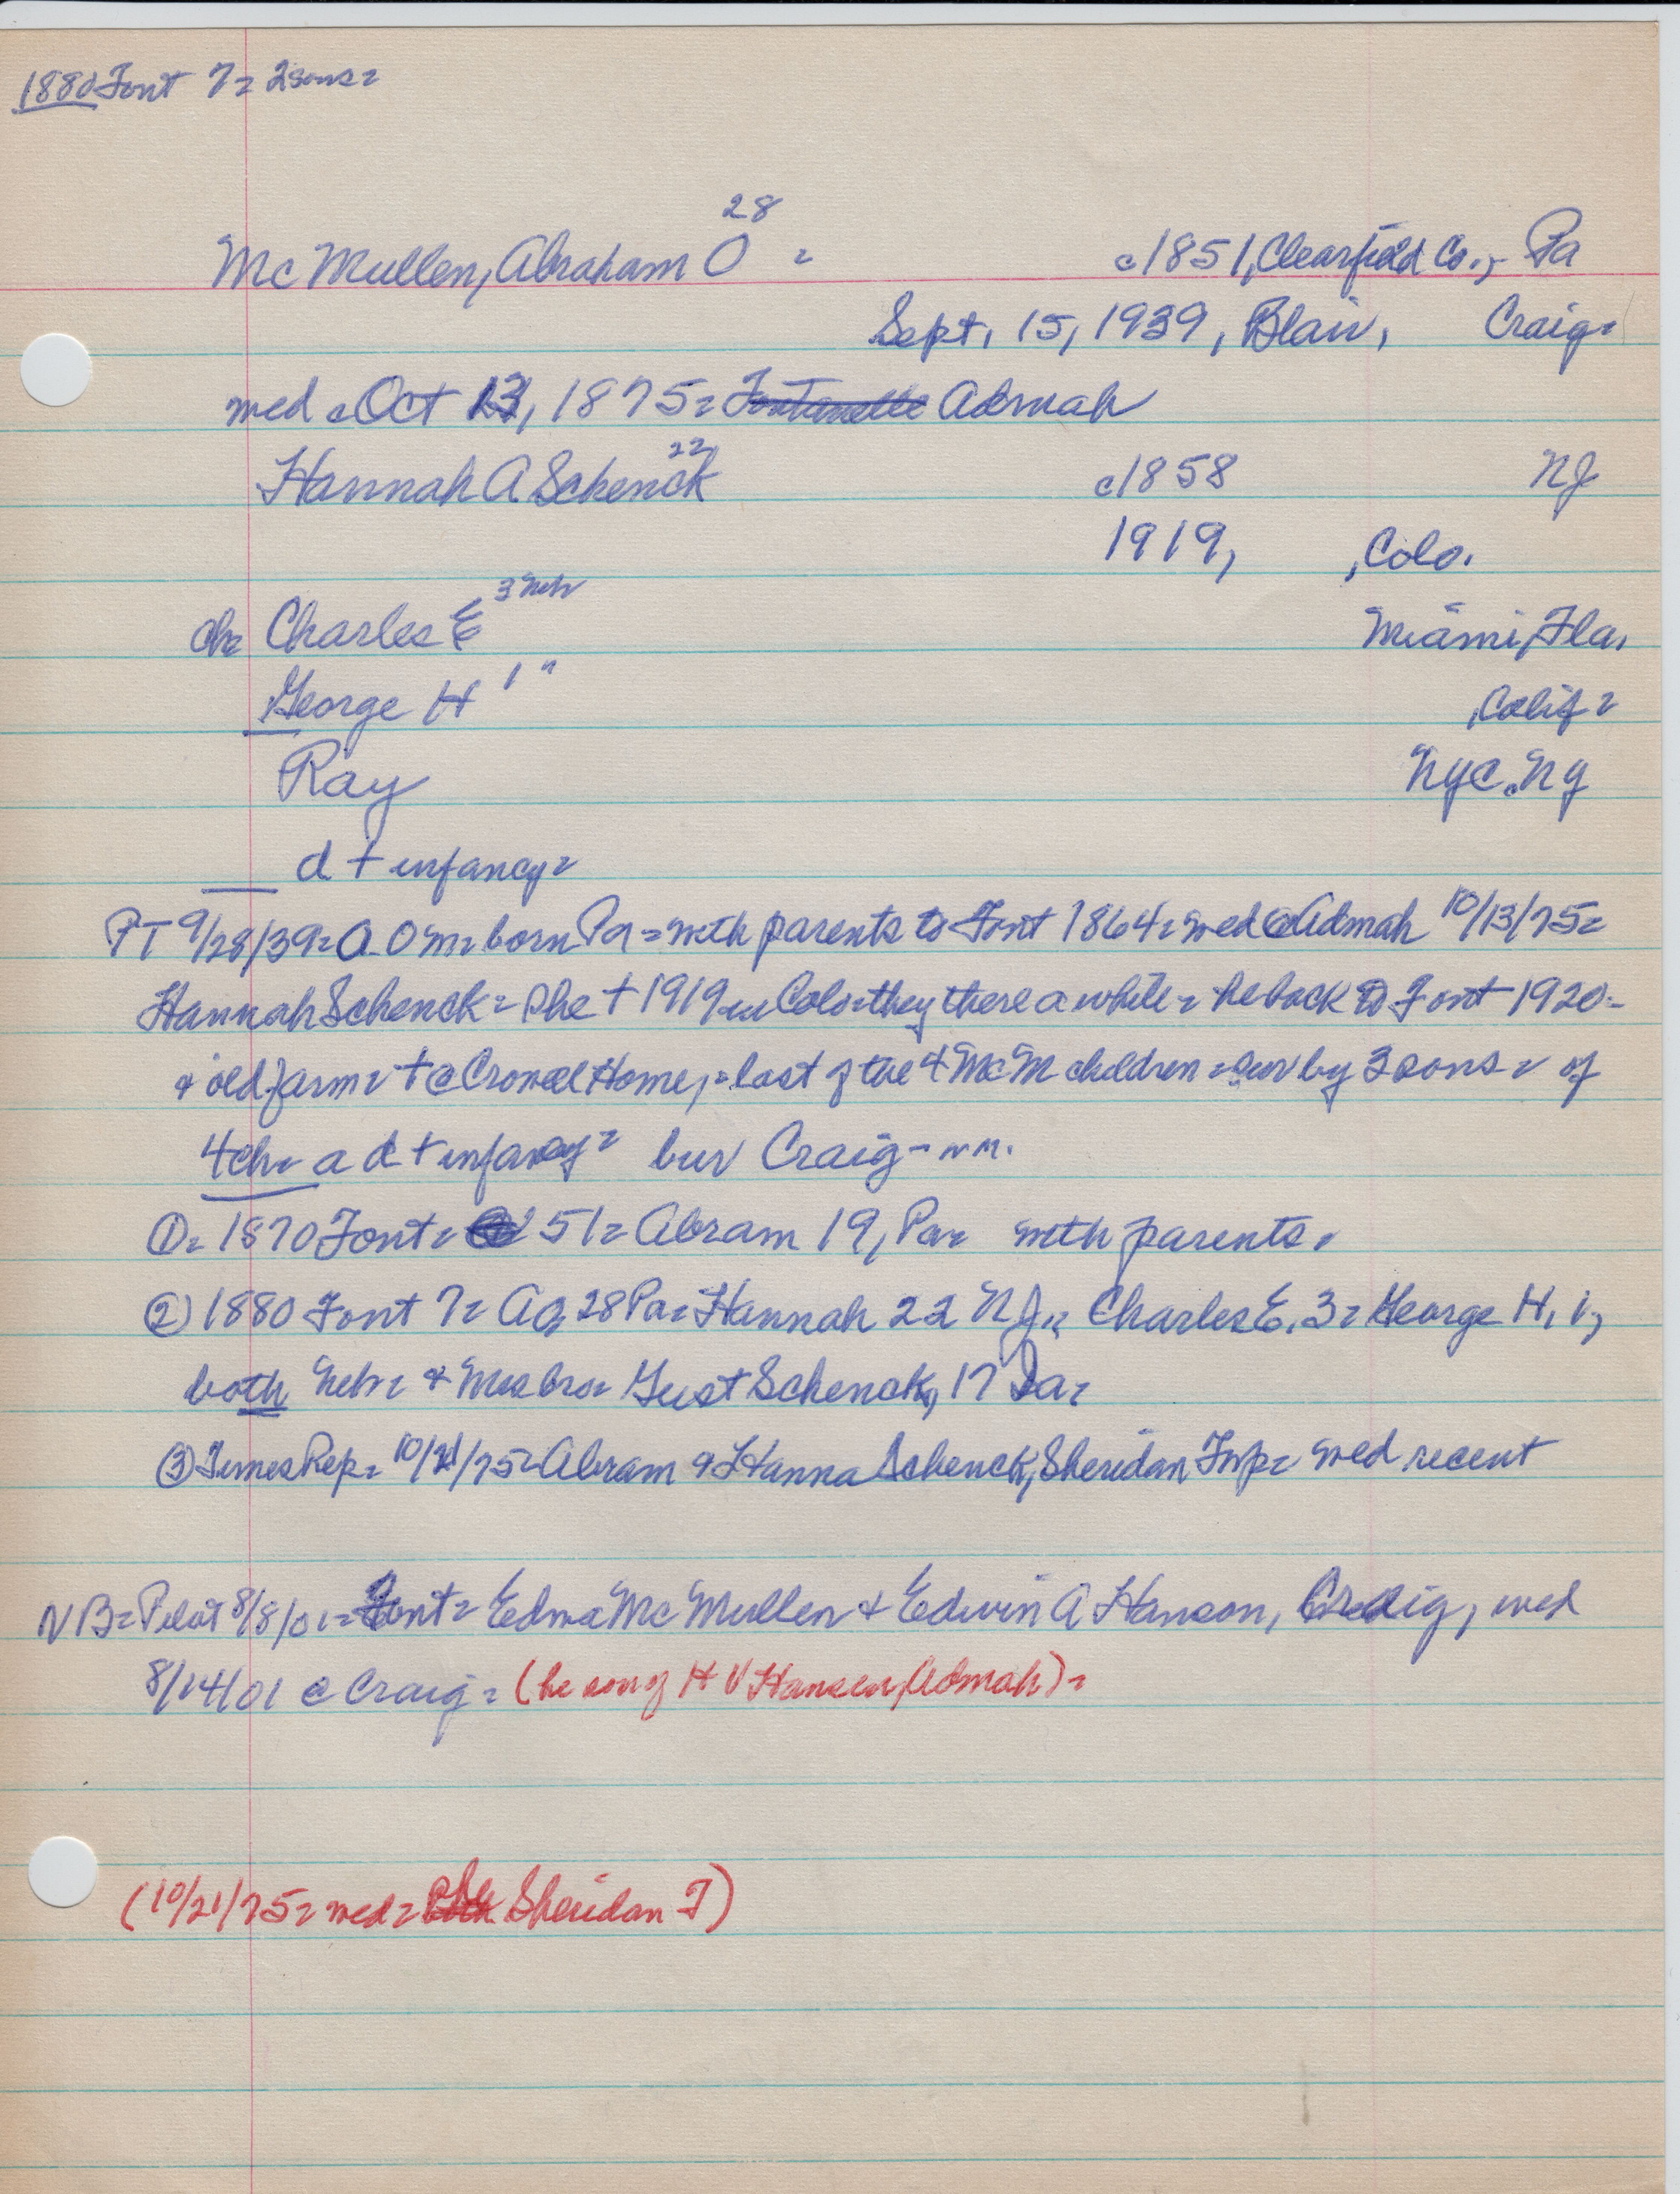 1880 Font 7= 2 sons=
28
McMullen, Abraham O = c1851, Clearfield Co., Pa
Sept. 15, 1939, Blair, Craig=
med c Oct 13, 1875= Fontanelle Admah
22
Hannah A Schenck c1858 NJ
1919, , Colo.
ch= Charles E 3 Neb Miami, Fla.
George H 1 " , Calif=
Ray NYC, NY
d + infancy=
PT 9/28/39= A.O m= born Pa= with parents to Font 1864= med @ Admah 10/13/75=
Hannah Schenck= she + 1919 in Colo= they there a while= he back to Font 1920=
& old farm= + @ Crowell Home,= last of the 4 McM children= sur by 3 sons= of
4 ch= a d + infancy= bur Craig-
①= 1870 Font= 51= Abram 19, Pa= with parents.
② 1880 Font 7= AO, 28 Pa= Hannah 22 NJ,= Charles E. 3= George H, 1,
both Neb= & bro= Gust Schenck, 17 Ia=
③ Times Rep= 10/21/75= Abram & Hanna Schenck, Sheridan Twp= med recent
NB= Pilot 8/8/01= Font= Edna McMullen & Edwin A Hanson, Craig, med
8/14/01 @ Craig= (he son of H V Hansen, Admah)=
(10/21/75= med= Sheridan T)